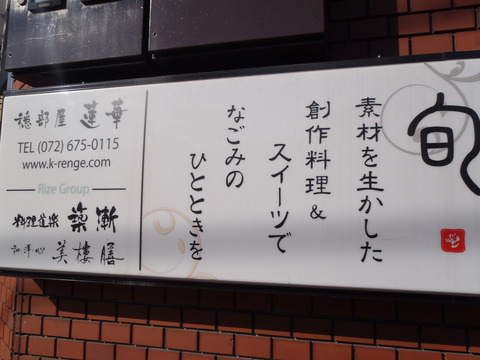 旬
素材を生かした
創作料理&
スイーツで
なごみの
ひとときを
穏部屋 蓮華
TEL (072) 675-0115
www.k-renge.com
Rize Group
料理道楽 築漸
和洋心 美楼膳